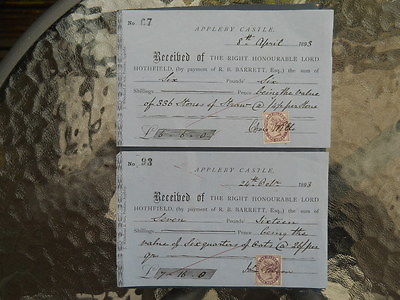 No. 67
APPLEBY CASTLE,
8th April 1893
Received of THE RIGHT HONOURABLE LORD
HOTHFIELD, (by payment of R. B. BARRETT, Esq.,) the sum of
Six Pounds Six
Shillings Pence being the value
of 336 Stones of Straw @ per Stone
£ 6 0
No. 93
APPLEBY CASTLE,
24th Octr 1893
Received of THE RIGHT HONOURABLE LORD
HOTHFIELD, (by payment of R. B. BARRETT, Esq.,) the sum of
Seven Pounds Sixteen
Shillings Pence being the
value of Six quarters of Oats @ 26/ per
qr
£ 7 16 0
John